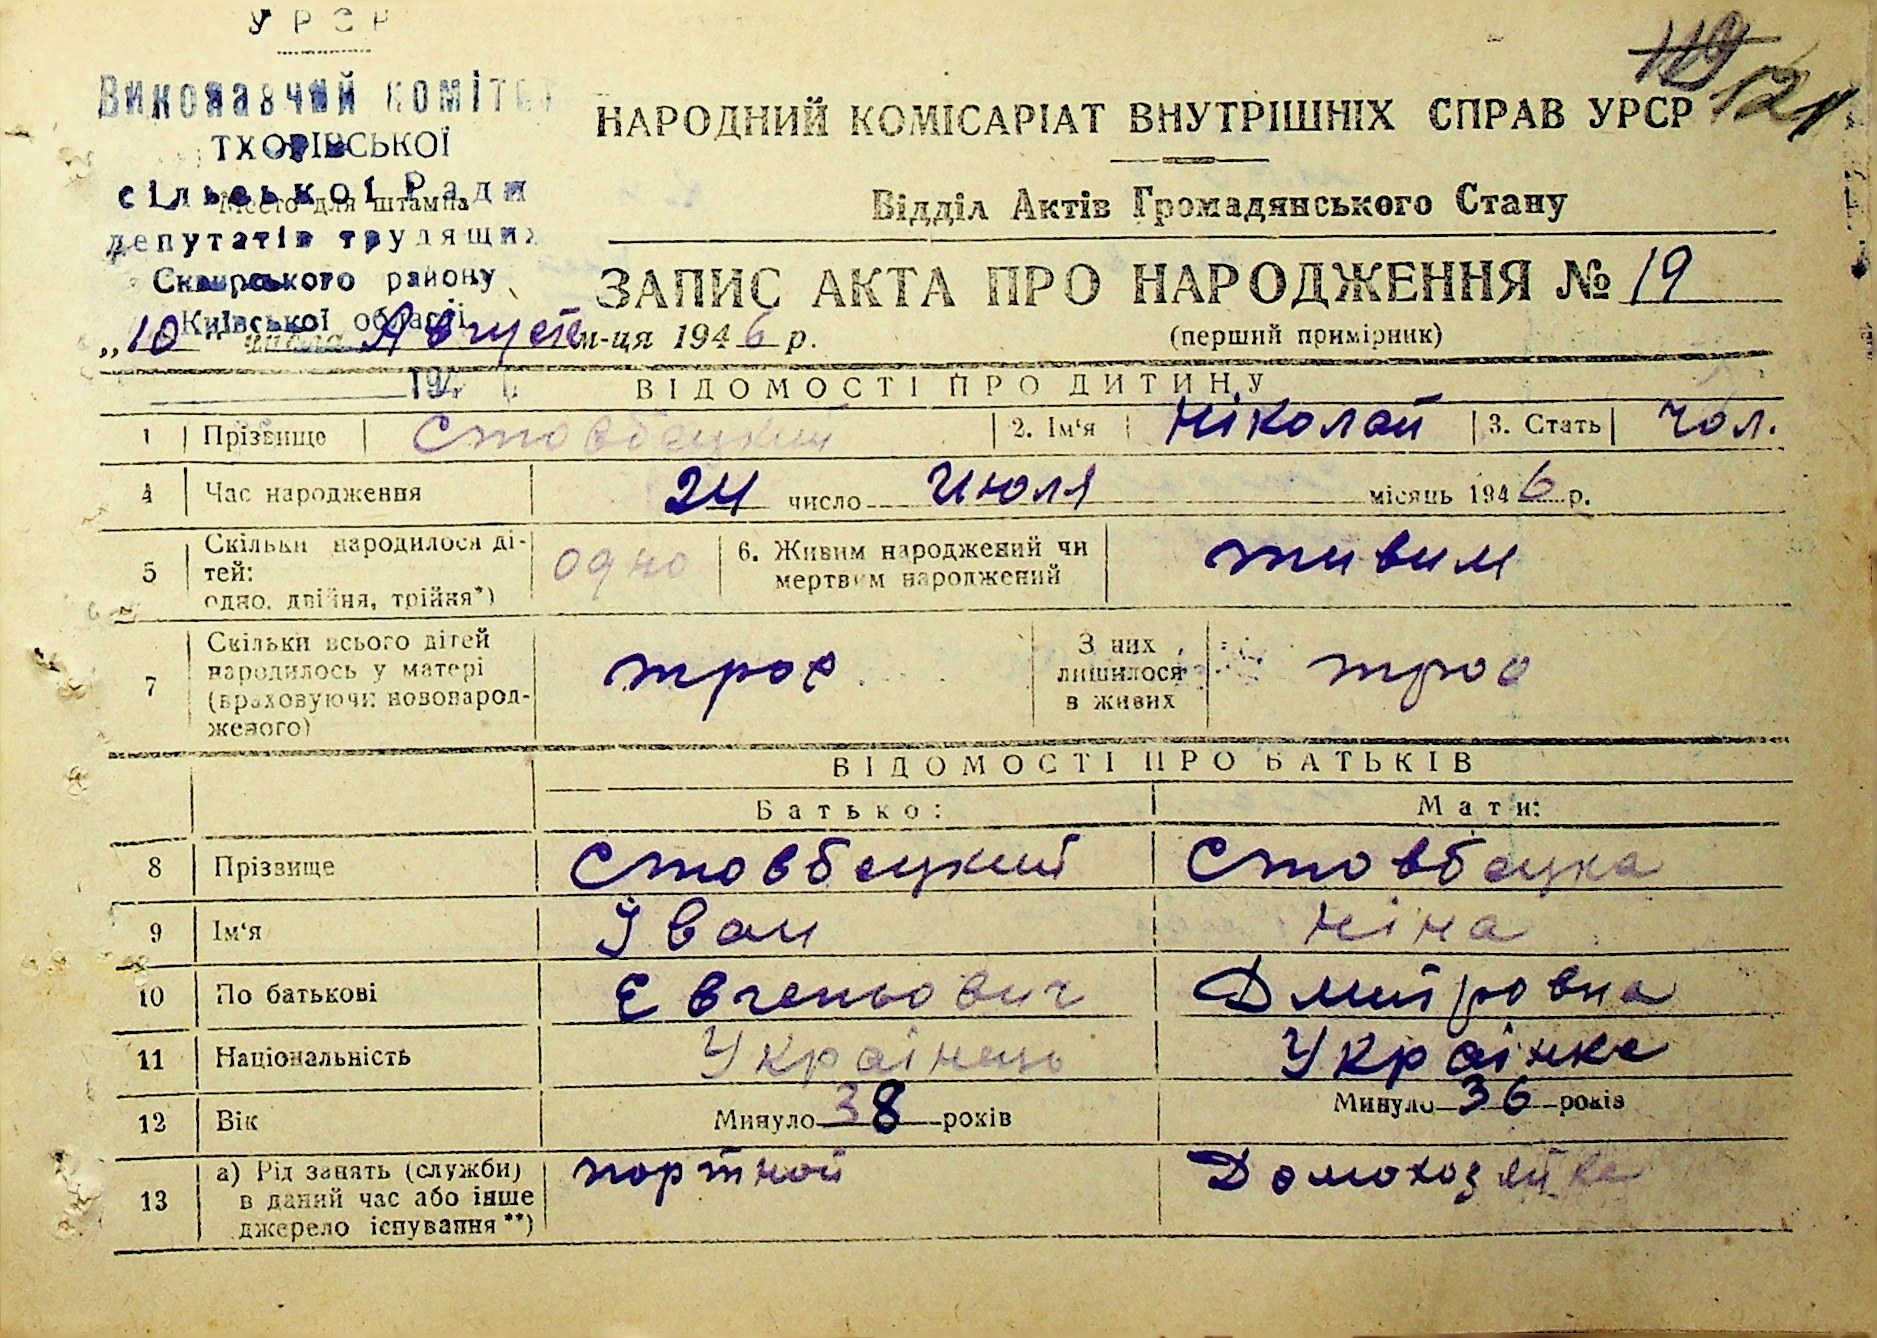 УРСР
Виконавчий комітет
ТХОРІВСЬКОЇ
сільської Ради
Место для штампа
депутатів трудящих
Сквирського району
Київської області
194
119 121
НАРОДНИЙ КОМІСАРІАТ ВНУТРІШНІХ СПРАВ УРСР
Відділ Актів Громадянського Стану
ЗАПИС АКТА ПРО НАРОДЖЕННЯ № 19
(перший примірник)
„10 числа Августа м-ця 1946 р.
ВІДОМОСТІ ПРО ДИТИНУ
1 Прізвище Стовбецкий 2. Ім'я Ніколай 3. Стать чол.
4 Час народження 24 число Июля місяць 1946 р.
5 Скільки народилося ді-
тей:
одно, двійня, трійня*) одно
6. Живим народжений чи
мертвим народжений живим
7 Скільки всього дітей
народилось у матері
(враховуючи новонарод-
женого) троє
З них
лишилося
в живих троє
ВІДОМОСТІ ПРО БАТЬКІВ
Батько: Мати:
8 Прізвище Стовбецкий Стовбецка
9 Ім'я Іван Ніна
10 По батькові Євгеньович Дмитровна
11 Національність Українець Українка
12 Вік Минуло 38 років Минуло 36 років
13 а) Рід занять (служби)
в даний час або інше
джерело існування**) портной Домохозяйка